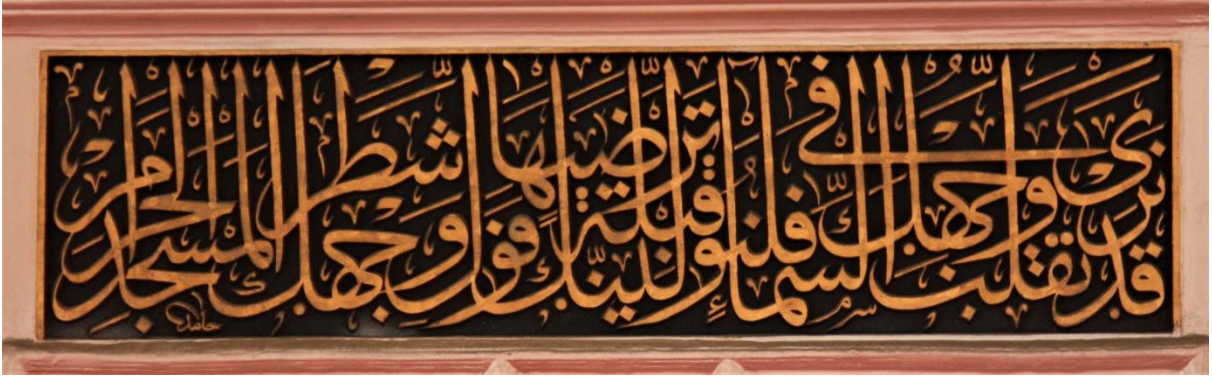 قد نرى تقلب وجهك في السماء فلنولينك قبلة ترضيها فول وجهك شطر المسجد الحرام
حامد